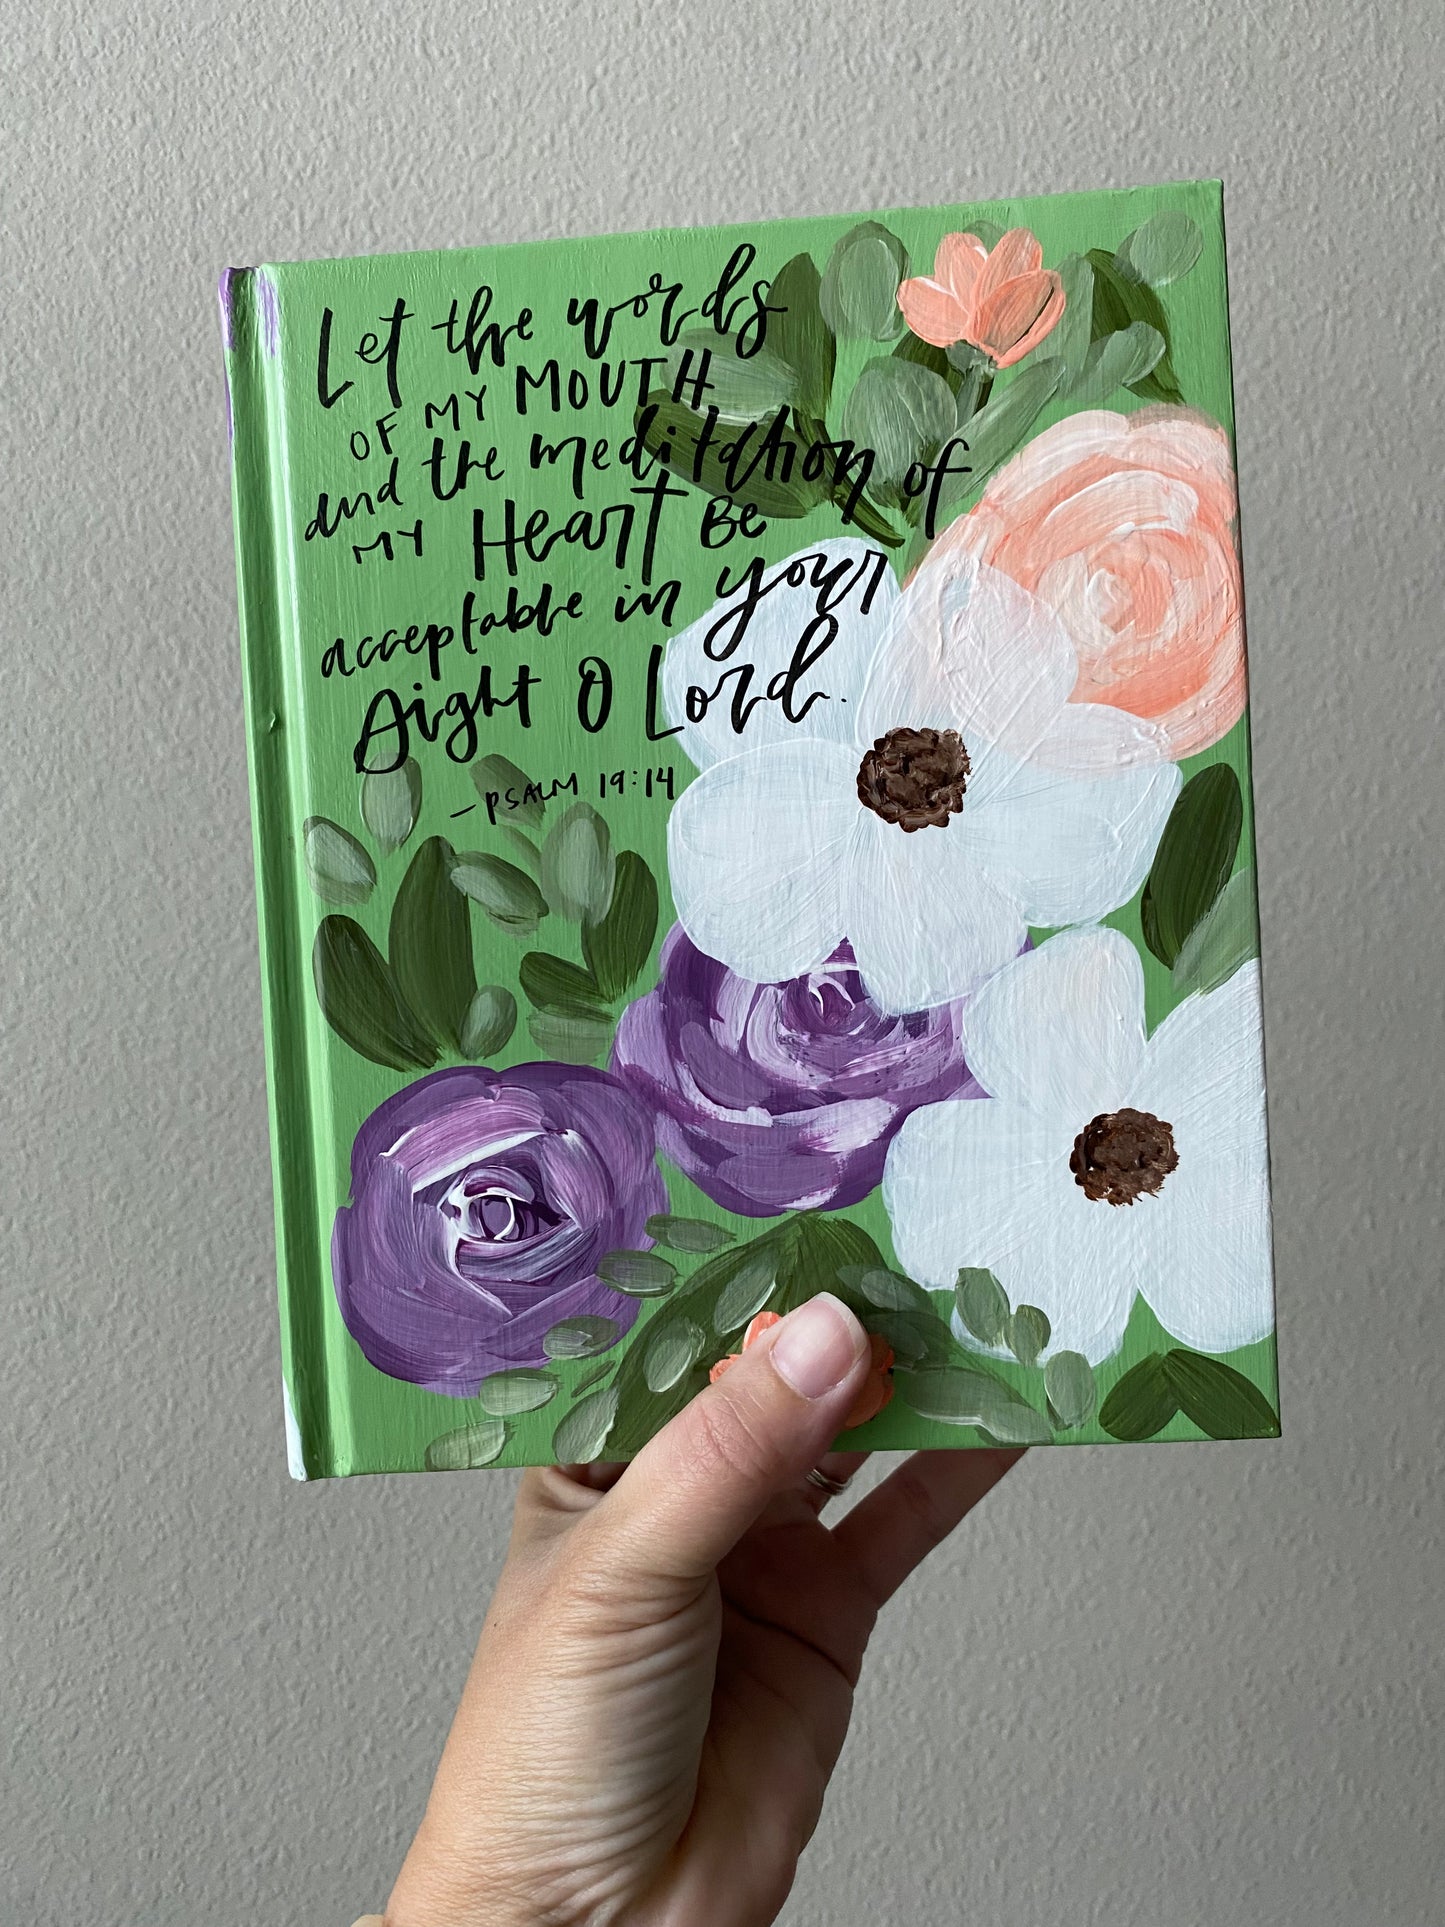 Let the words
OF MY MOUTH
and the meditation of
MY Heart Be
acceptable in your
Sight O Lord.
- PSALM 19:14